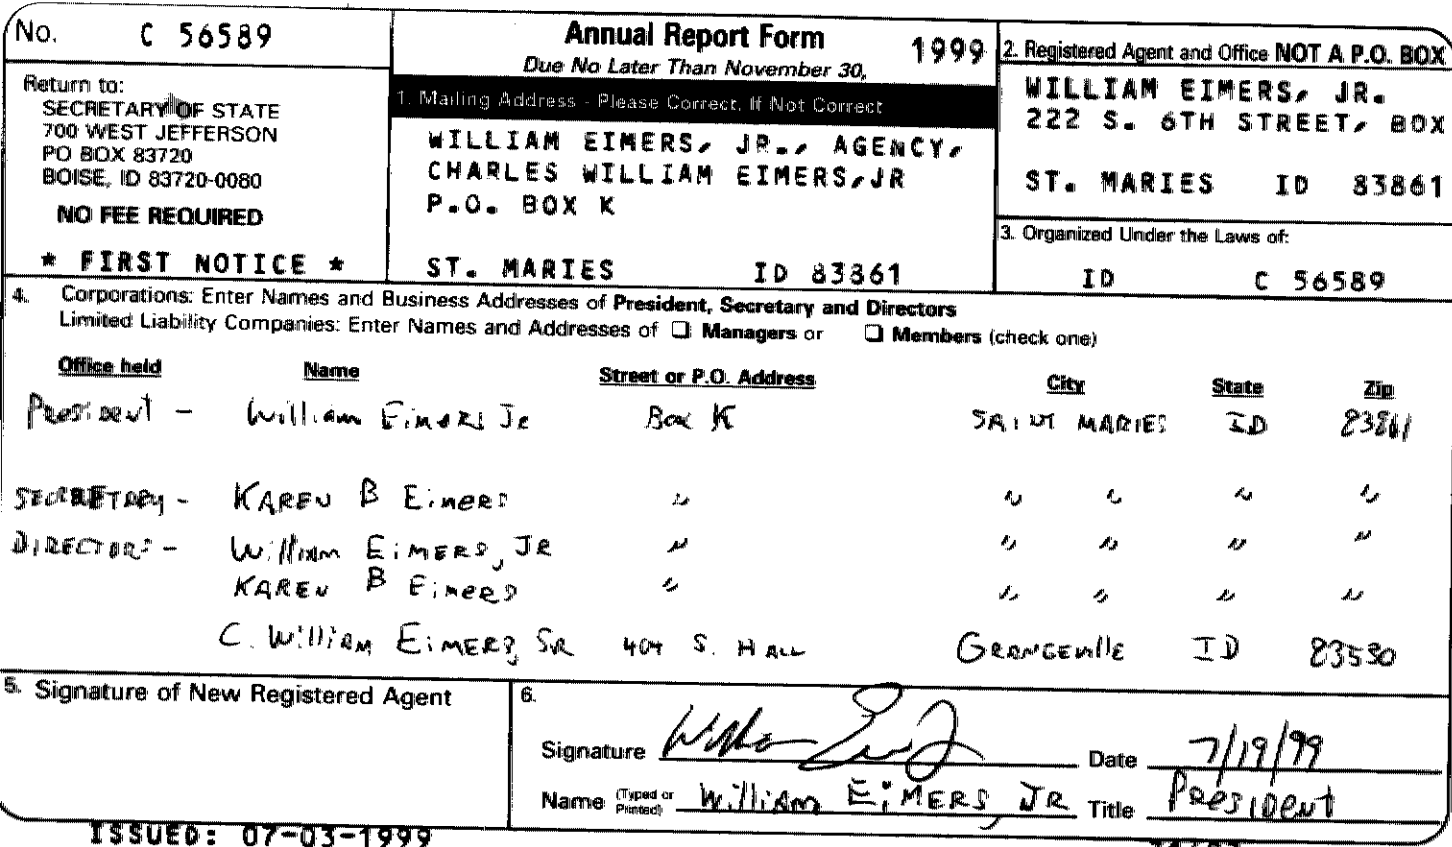 No. C 56589
Return to:
SECRETARY OF STATE
700 WEST JEFFERSON
PO BOX 83720
BOISE, ID 83720-0080
NO FEE REQUIRED
* FIRST NOTICE *
Annual Report Form 1999
Due No Later Than November 30,
1. Mailing Address - Please Correct, If Not Correct
WILLIAM EIMERS, JR., AGENCY,
CHARLES WILLIAM EIMERS, JR
P.O. BOX K
ST. MARIES ID 83861
2. Registered Agent and Office NOT A P.O. BOX
WILLIAM EIMERS, JR.
222 S. 6TH STREET, BOX
ST. MARIES ID 83861
3. Organized Under the Laws of:
ID C 56589
4. Corporations: Enter Names and Business Addresses of President, Secretary and Directors
Limited Liability Companies: Enter Names and Addresses of ❑ Managers or ❑ Members (check one)
Office held Name Street or P.O. Address City State Zip
President - William Eimers Jr Box K SAINT MARIES ID 83861
SECRETARY - KAREN B Eimers " " " " "
DIRECTORS - William EIMERS, JR " " " " "
KAREN B Eimers " " " " "
C. William EIMERS, SR 404 S. HALL GRANGEVILLE ID 83530
5. Signature of New Registered Agent
6.
Signature Date 7/19/99
Name (Typed or Printed) William EIMERS, JR Title President
ISSUED: 07-03-1999